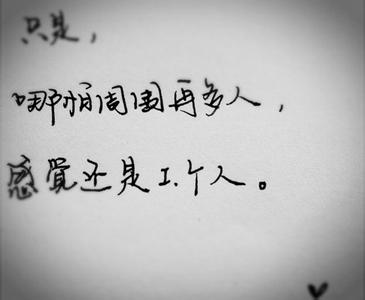 只是,
哪怕周围再多人,
感觉还是工个人。